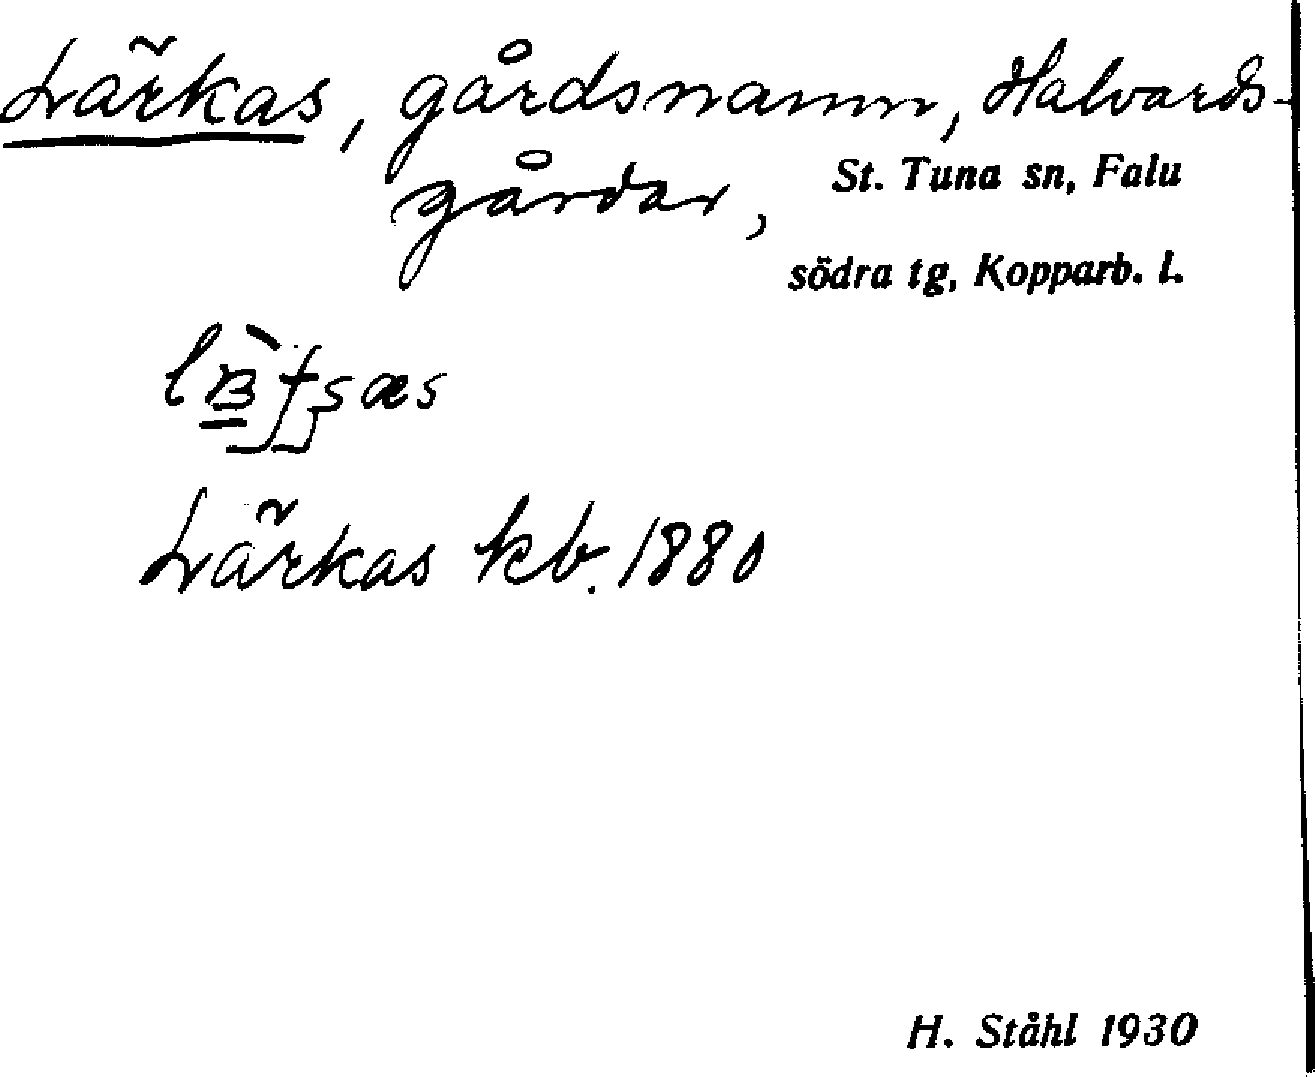 Lärkas, gårdsnamn, Halvards-
gårdar, St. Tuna sn, Falu
södra tg, Kopparb. l.
Lärkas kb. 1880
H. Ståhl 1930